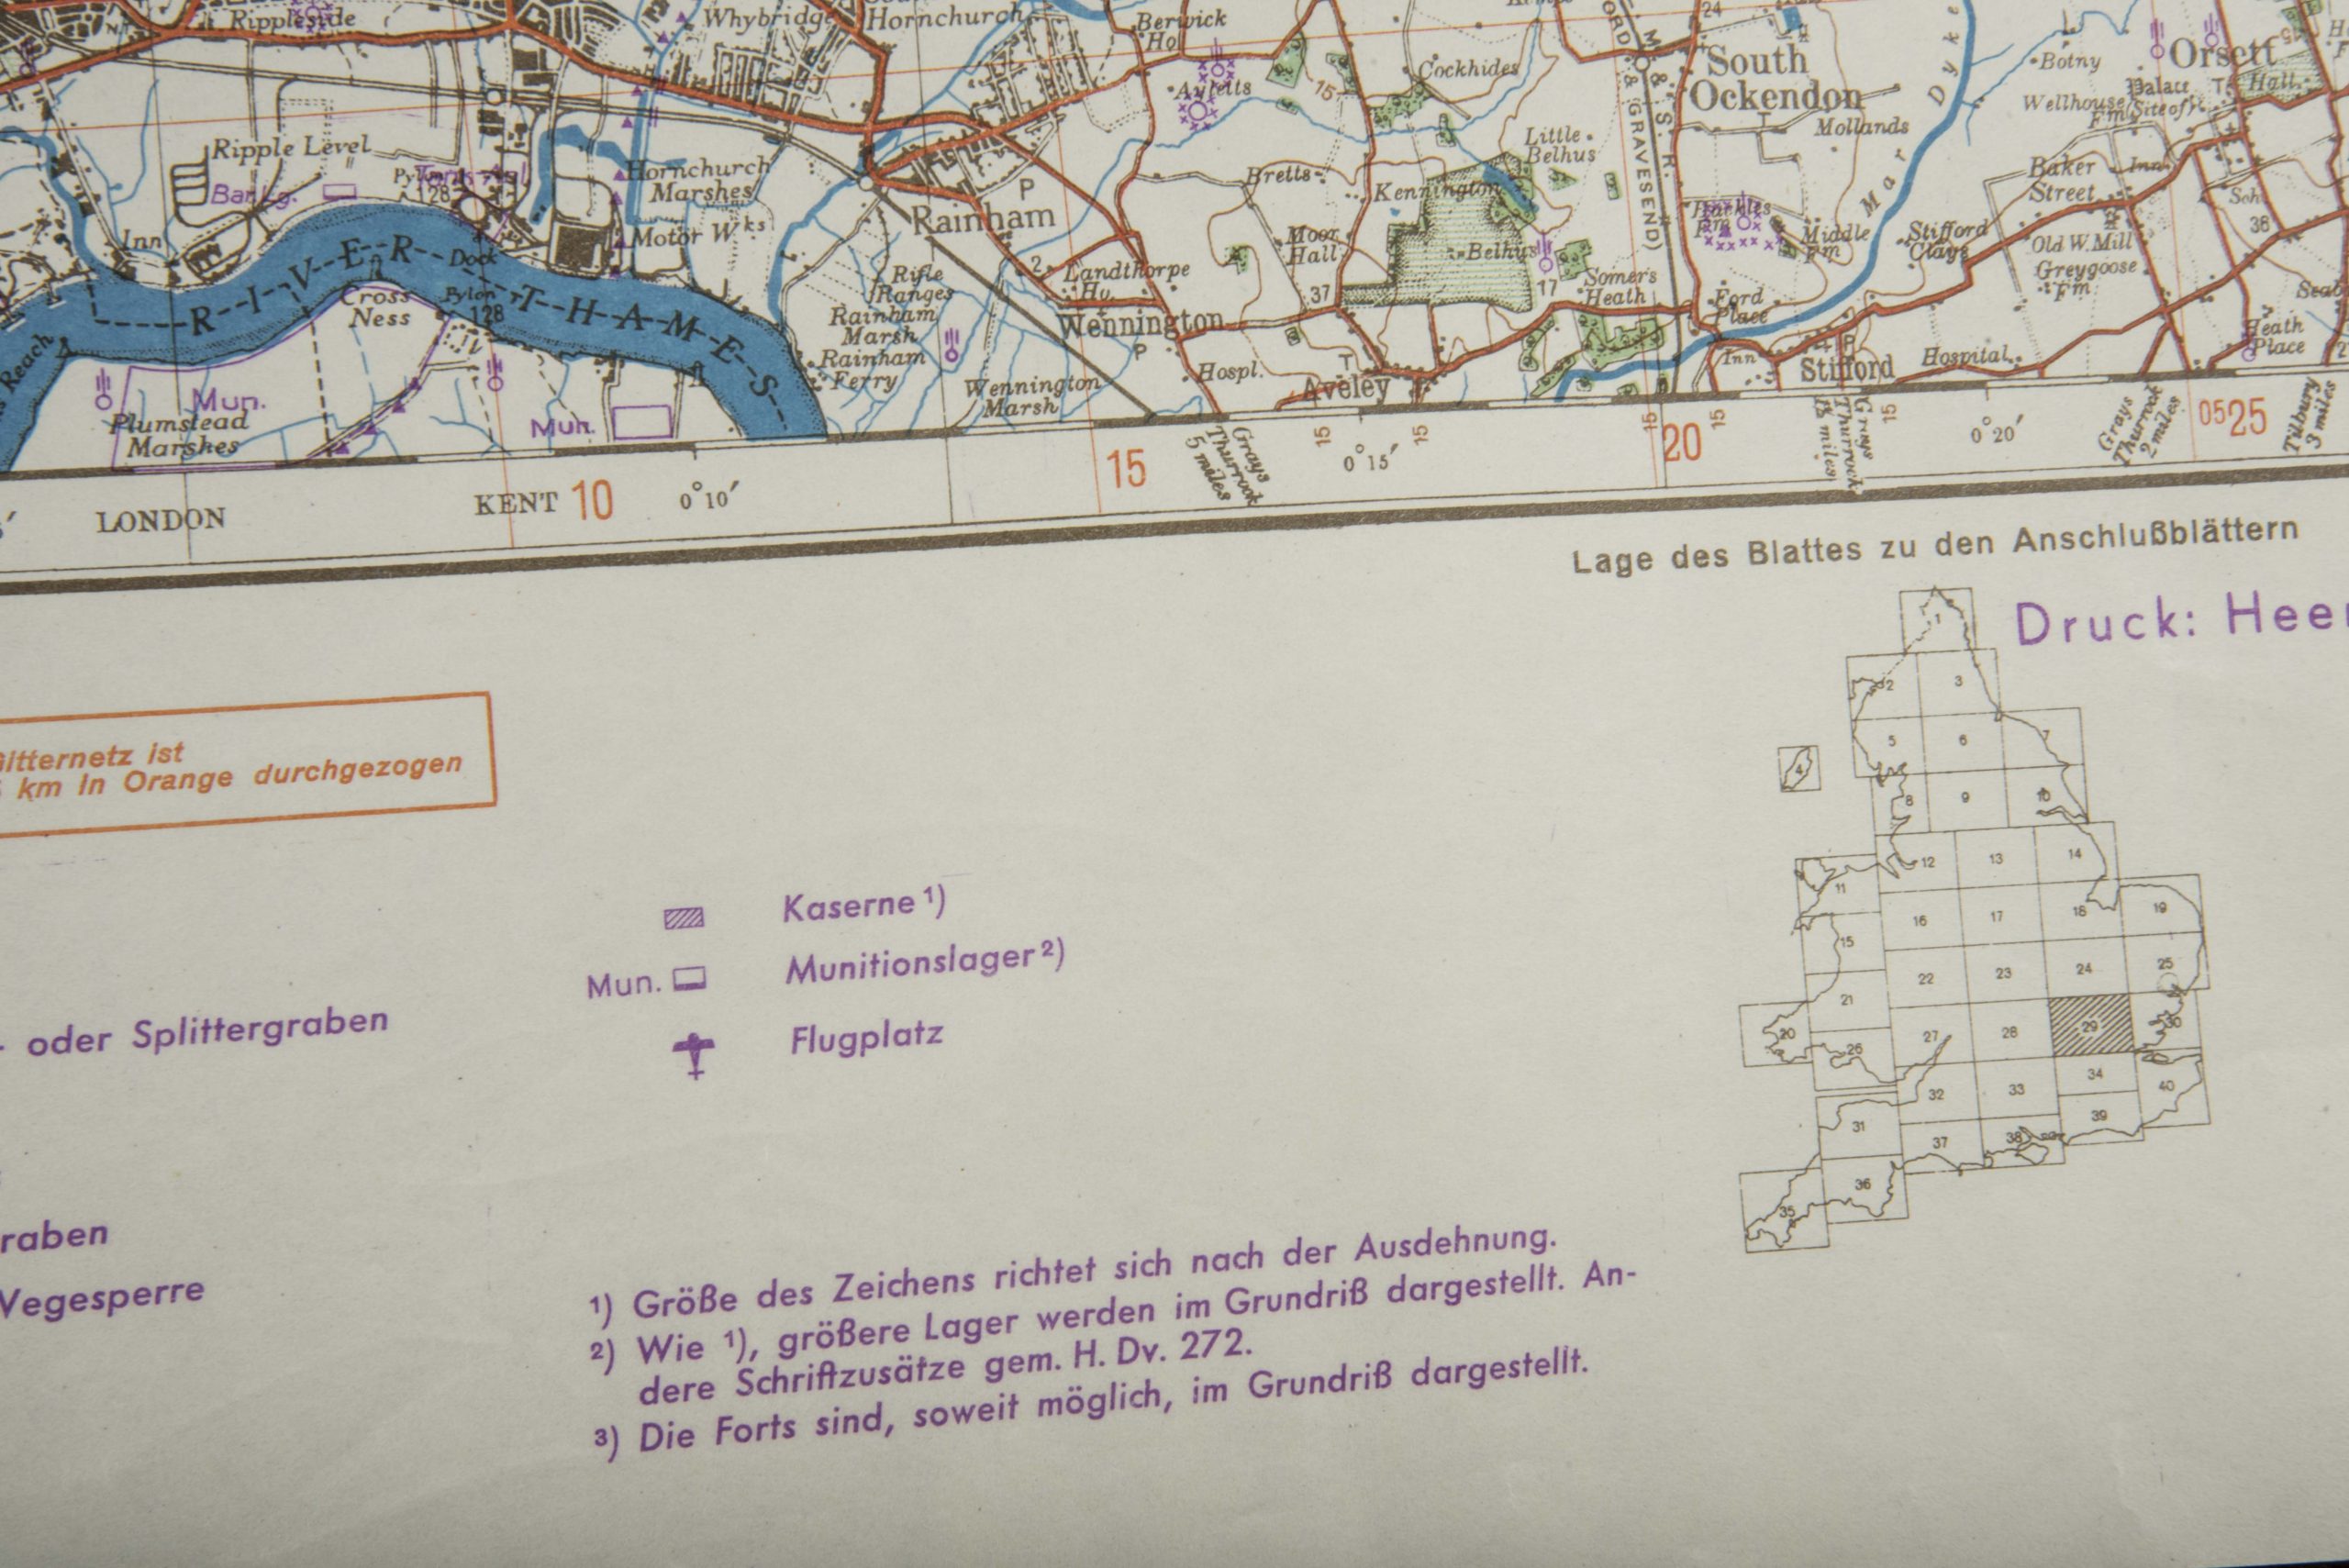 Rippleside
Whybridge
Hornchurch
Berwick
Ho.
Ayletts
Cockhides
15
24
South
Ockendon
Mollands
Mar Dyke
Botny
Orsett
Hall
Palace
(Site of)
Wellhouse
Fm
Ripple Level
Pylon
128
Hornchurch
Marshes
Motor Wks
Inn
Dock
RIVER THAMES
Cross
Ness
Pylon
128
Reach
Mun.
Plumstead
Marshes
Mun.
P
Rainham
Rifle
Ranges
Rainham
Marsh
Rainham
Ferry
2
Landthorpe
Ho.
Wennington
P
Wennington
Marsh
Hospl.
Bretts
Moor
Hall
37
Kennington
Little
Belhus
Belhus
17
Somers
Heath
T
Aveley
& GRAVESEND)
M. & S. R.
Middle
Fm
Ford
Place
Inn
P
Stifford
Stifford
Clays
Hospital
Baker
Street
Inn
Old W. Mill
Greygoose
Fm
Sch.
36
Heath
Place
LONDON
KENT
10
0°10′
15
Grays
Thurrock
5 miles
15
0°15′
15
15
20
15
Grays
Thurrock
15
0°20′
Grays
Thurrock
2 miles
0525
Tilbury
3 miles
Lage des Blattes zu den Anschlußblättern
Druck: Heer
1
2
3
4
5
6
7
8
9
10
11
12
13
14
15
16
17
18
19
20
21
22
23
24
25
26
27
28
29
30
31
32
33
34
35
36
37
38
39
40
Gitternetz ist
km in Orange durchgezogen
- oder Splittergraben
raben
Wegesperre
Kaserne 1)
Mun. Munitionslager 2)
Flugplatz
1) Größe des Zeichens richtet sich nach der Ausdehnung.
2) Wie 1), größere Lager werden im Grundriß dargestellt. An-
dere Schriftzusätze gem. H. Dv. 272.
3) Die Forts sind, soweit möglich, im Grundriß dargestellt.